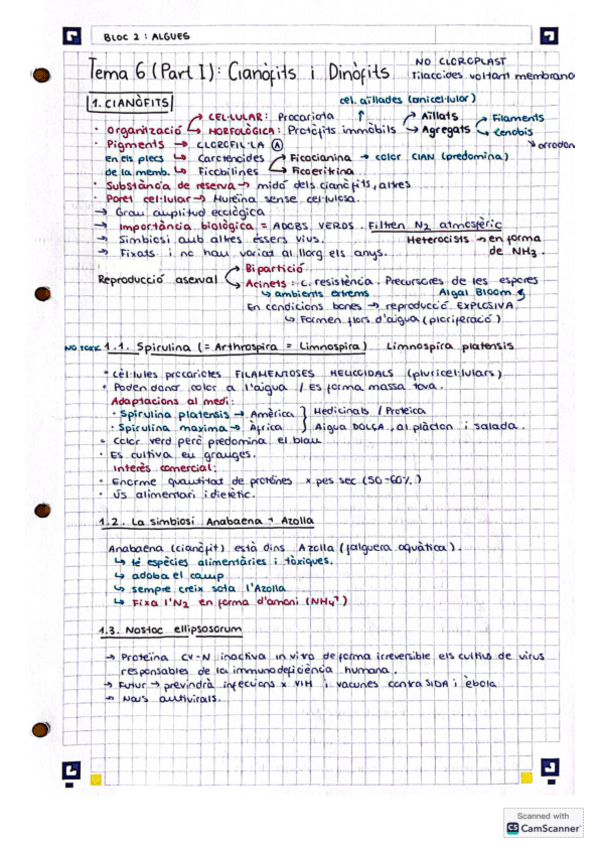 BLOC 2 : ALGUES
Tema 6 (Part I): Cianòfits i Dinòfits
NO CLOROPLAST
Tilacoides voltant membrana
1. CIANÒFITS
cèl. aïllades (unicel·lular)
· Organització → CEL·LULAR: Procariota
→ MORFOLÒGICA: Protòfits immòbils → Aïllats
→ Agregats → Filaments
→ Cenobis
→ arrodon
· Pigments → CLOROFIL·LA A
en els plecs → Carotenoides
de la memb. → Ficobilines → Ficocianina → color CIAN (predomina)
→ Ficoeritrina
· Substància de reserva → midó dels cianòfits, altres
· Paret cel·lular → Mureïna sense cel·lulosa.
→ Gran amplitud ecològica
→ Importància biològica = ADOBS VERDS. Filtren N2 atmosfèric
→ Simbiosi amb altres éssers vius.
Heterocists → en forma de NH3.
→ Fixats i no han variat al llarg els anys.
Reproducció asexual → Bipartició
→ Acinets: c. resistència. Precursores de les espores
↳ ambients extrems
Algal Bloom
En condicions bones → reproducció EXPLOSIVA
↳ Formen flors d'aigua (proliferació)
NO TOXIC 1.1. Spirulina (= Arthrospira = Limnospira) Limnospira platensis
· Cèl·lules procariotes FILAMENTOSES HELICOIDALS (pluricel·lulars)
· Poden donar color a l'aigua / Es forma massa tova.
Adaptacions al medi:
· Spirulina platensis → Amèrica } Medicinals / Proteica
· Spirulina maxima → Àfrica } Aigua DOLÇA, al plàcton i salada.
· Color verd però predomina el blau
· Es cultiva en granges.
Interès comercial:
· Enorme quantitat de proteïnes x pes sec (50-60%)
· Ús alimentari i dietètic.
1.2. La simbiosi Anabaena + Azolla
Anabaena (cianòfit) està dins Azolla (falguera aquàtica).
↳ té espècies alimentàries i tòxiques.
↳ adoba el camp
↳ sempre creix sota l'Azolla
↳ Fixa l'N2 en forma d'amoni (NH4+)
1.3. Nostoc ellipsosorum
→ Proteïna CV-N inactiva in vivo de forma irreversible els cultius de virus
responsables de la immunodeficiència humana.
→ Futur → previndrà infeccions x VIH i vacunes contra SIDA i èbola
→ Nous antivirals.
Scanned with
CS CamScanner